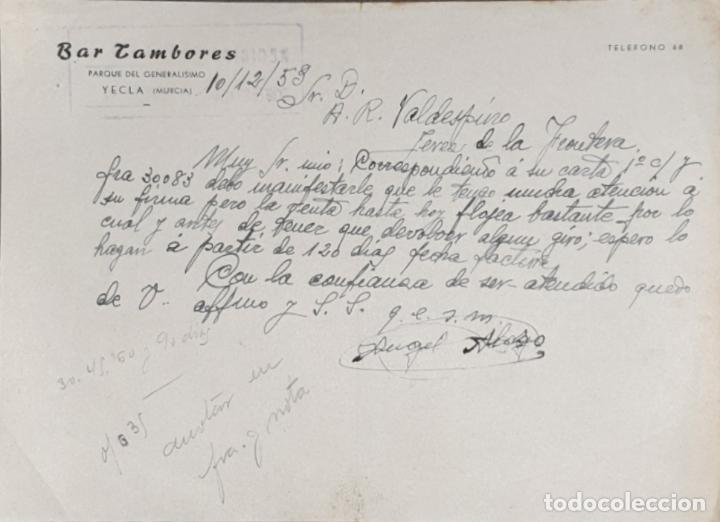 Bar Tambores
TELEFONO 68
PARQUE DEL GENERALISIMO
YECLA (MURCIA)
10/12/53
Sr. D.
A. R. Valdespino
Jerez de la Frontera
Muy Sr. mio: Correspondiendo á su carta 1º c/ y
fra 30083 debo manifestarle que le tengo mucha atención á
su firma pero la venta hasta hoy flojea bastante por lo
cual y antes de tener que devolver algun giro; espero lo
hagan a partir de 120 dias fecha factura
Con la confianza de ser atendido quedo
de V. affmo y S. S. q. e. s. m
Angel
30. 45. 60 y 90 dias
o/635
anotar en
fra. y nota
todocoleccion
todocoleccion.net